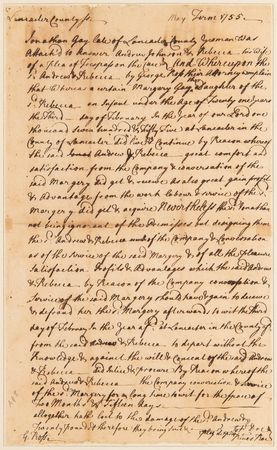 Lancaster County ss. May Term 1755.
Jonathan Gay late of Lancaster County Yeoman was
Attach'd to Answer Andrew Johnson & Rebecca his Wife
of a plea of Trespass on the Case &c And Whereupon the
sd Andrew & Rebecca by George Ross their Attorney complain
that Whereas a certain Margery Gay Daughter of the
sd Rebecca an Infant under the Age of Twenty one years
the Third day of February in the Year of our Lord one
thousand seven hundred & fifty five at Lancaster in the
County of Lancaster did live & Continue by Reason whereof
the said Andrew & Rebecca great comfort and
satisfaction from the Company & conversation of the
said Margery did get & have as also great gain profit
& Advantage from the work labour & service of the sd
Margery did get & acquire Nevertheless the sd Jonathan
not being ignorant of the premisses but designing them
the sd Andrew & Rebecca as well of the Company & Conversation
as of the Service of the said Margery & of all the pleasure
Satisfaction Profits & Advantages which the said Andrew
& Rebecca by Reason of the Company conversation &
Service of the said Margery should have again to deceive
& defraud her the sd Margery afterwards to wit the Third
day of February in the Year afd at Lancaster in the County afd
from the said Andrew & Rebecca to depart without the
Knowledge & against the will & Consent of the said Andrew
& Rebecca did Entice & procure By Reason whereof the
said Andrew & Rebecca the Company conversation & Service
of the sd Margery for a long time to wit for the space of
two Months & fifteen days
altogether hath lost to the damage of the sd Andrew &
Twenty pounds & therefore they bring suit &c
G Ross